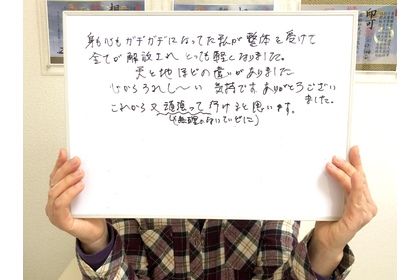 身も心もガチガチになってた私が整体を受けて
全てが解放されとっても軽くなりました。
天と地ほどの違いがありました
心からうれし〜い気持です。ありがとうござい
ました。
これから又頑張って行けると思います。
(無理のないていどに)
印可